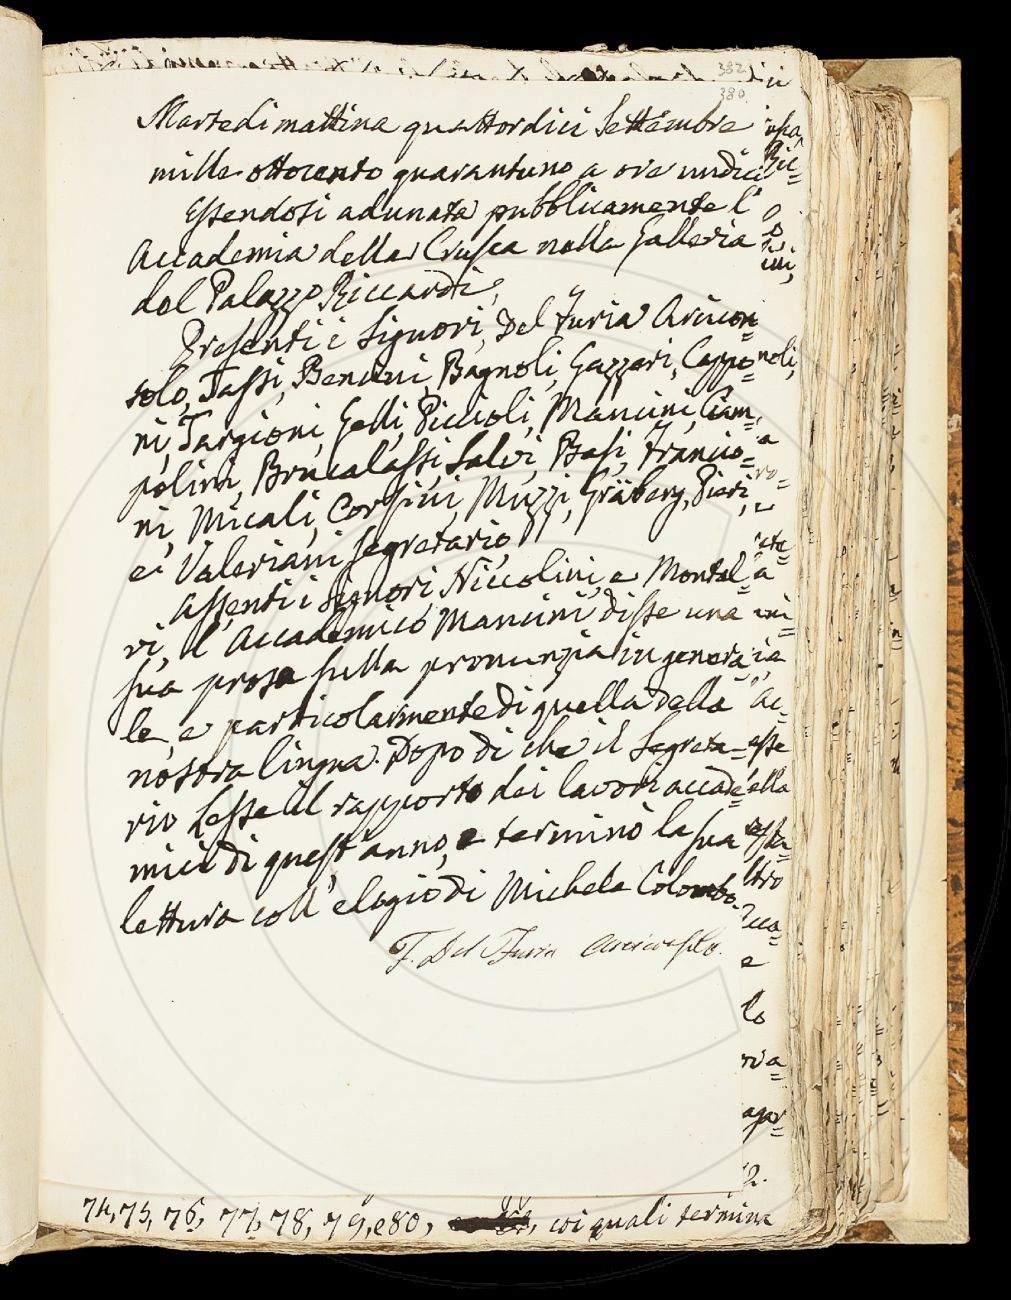 382
380
Martedì mattina quattordici Settembre
mille ottocento quarantuno a ore undici
Essendosi adunata pubblicamente l'
Accademia della Crusca nella Galleria
del Palazzo Riccardi,
Presenti i Signori, Del Furia Arcicon=
solo, Tassi, Bencini, Bagnoli, Gazzeri, Cappo=
ni, Targioni, Gelli, Piccioli, Mancini, Ciam=
polini, Brucalassi, Salvi, Basi, Francio=
ni, Micali, Corsini, Muzzi, Gräberg, Pieri,
e Valeriani Segretario,
Assenti i Signori Niccolini, e Montal=
vi, l'Accademico Mancini disse una
sua prosa sulla pronunzia in genera=
le, e particolarmente di quella della
nostra lingua. Dopo di che il Segreta=
rio Lesse il rapporto dei lavori accade=
mici di quest'anno, e terminò la sua
lettura coll'elogio di Michele Colombo.
F. Del Furia Arciconsolo.
74, 75, 76, 77, 78, 79, e 80, coi quali termina